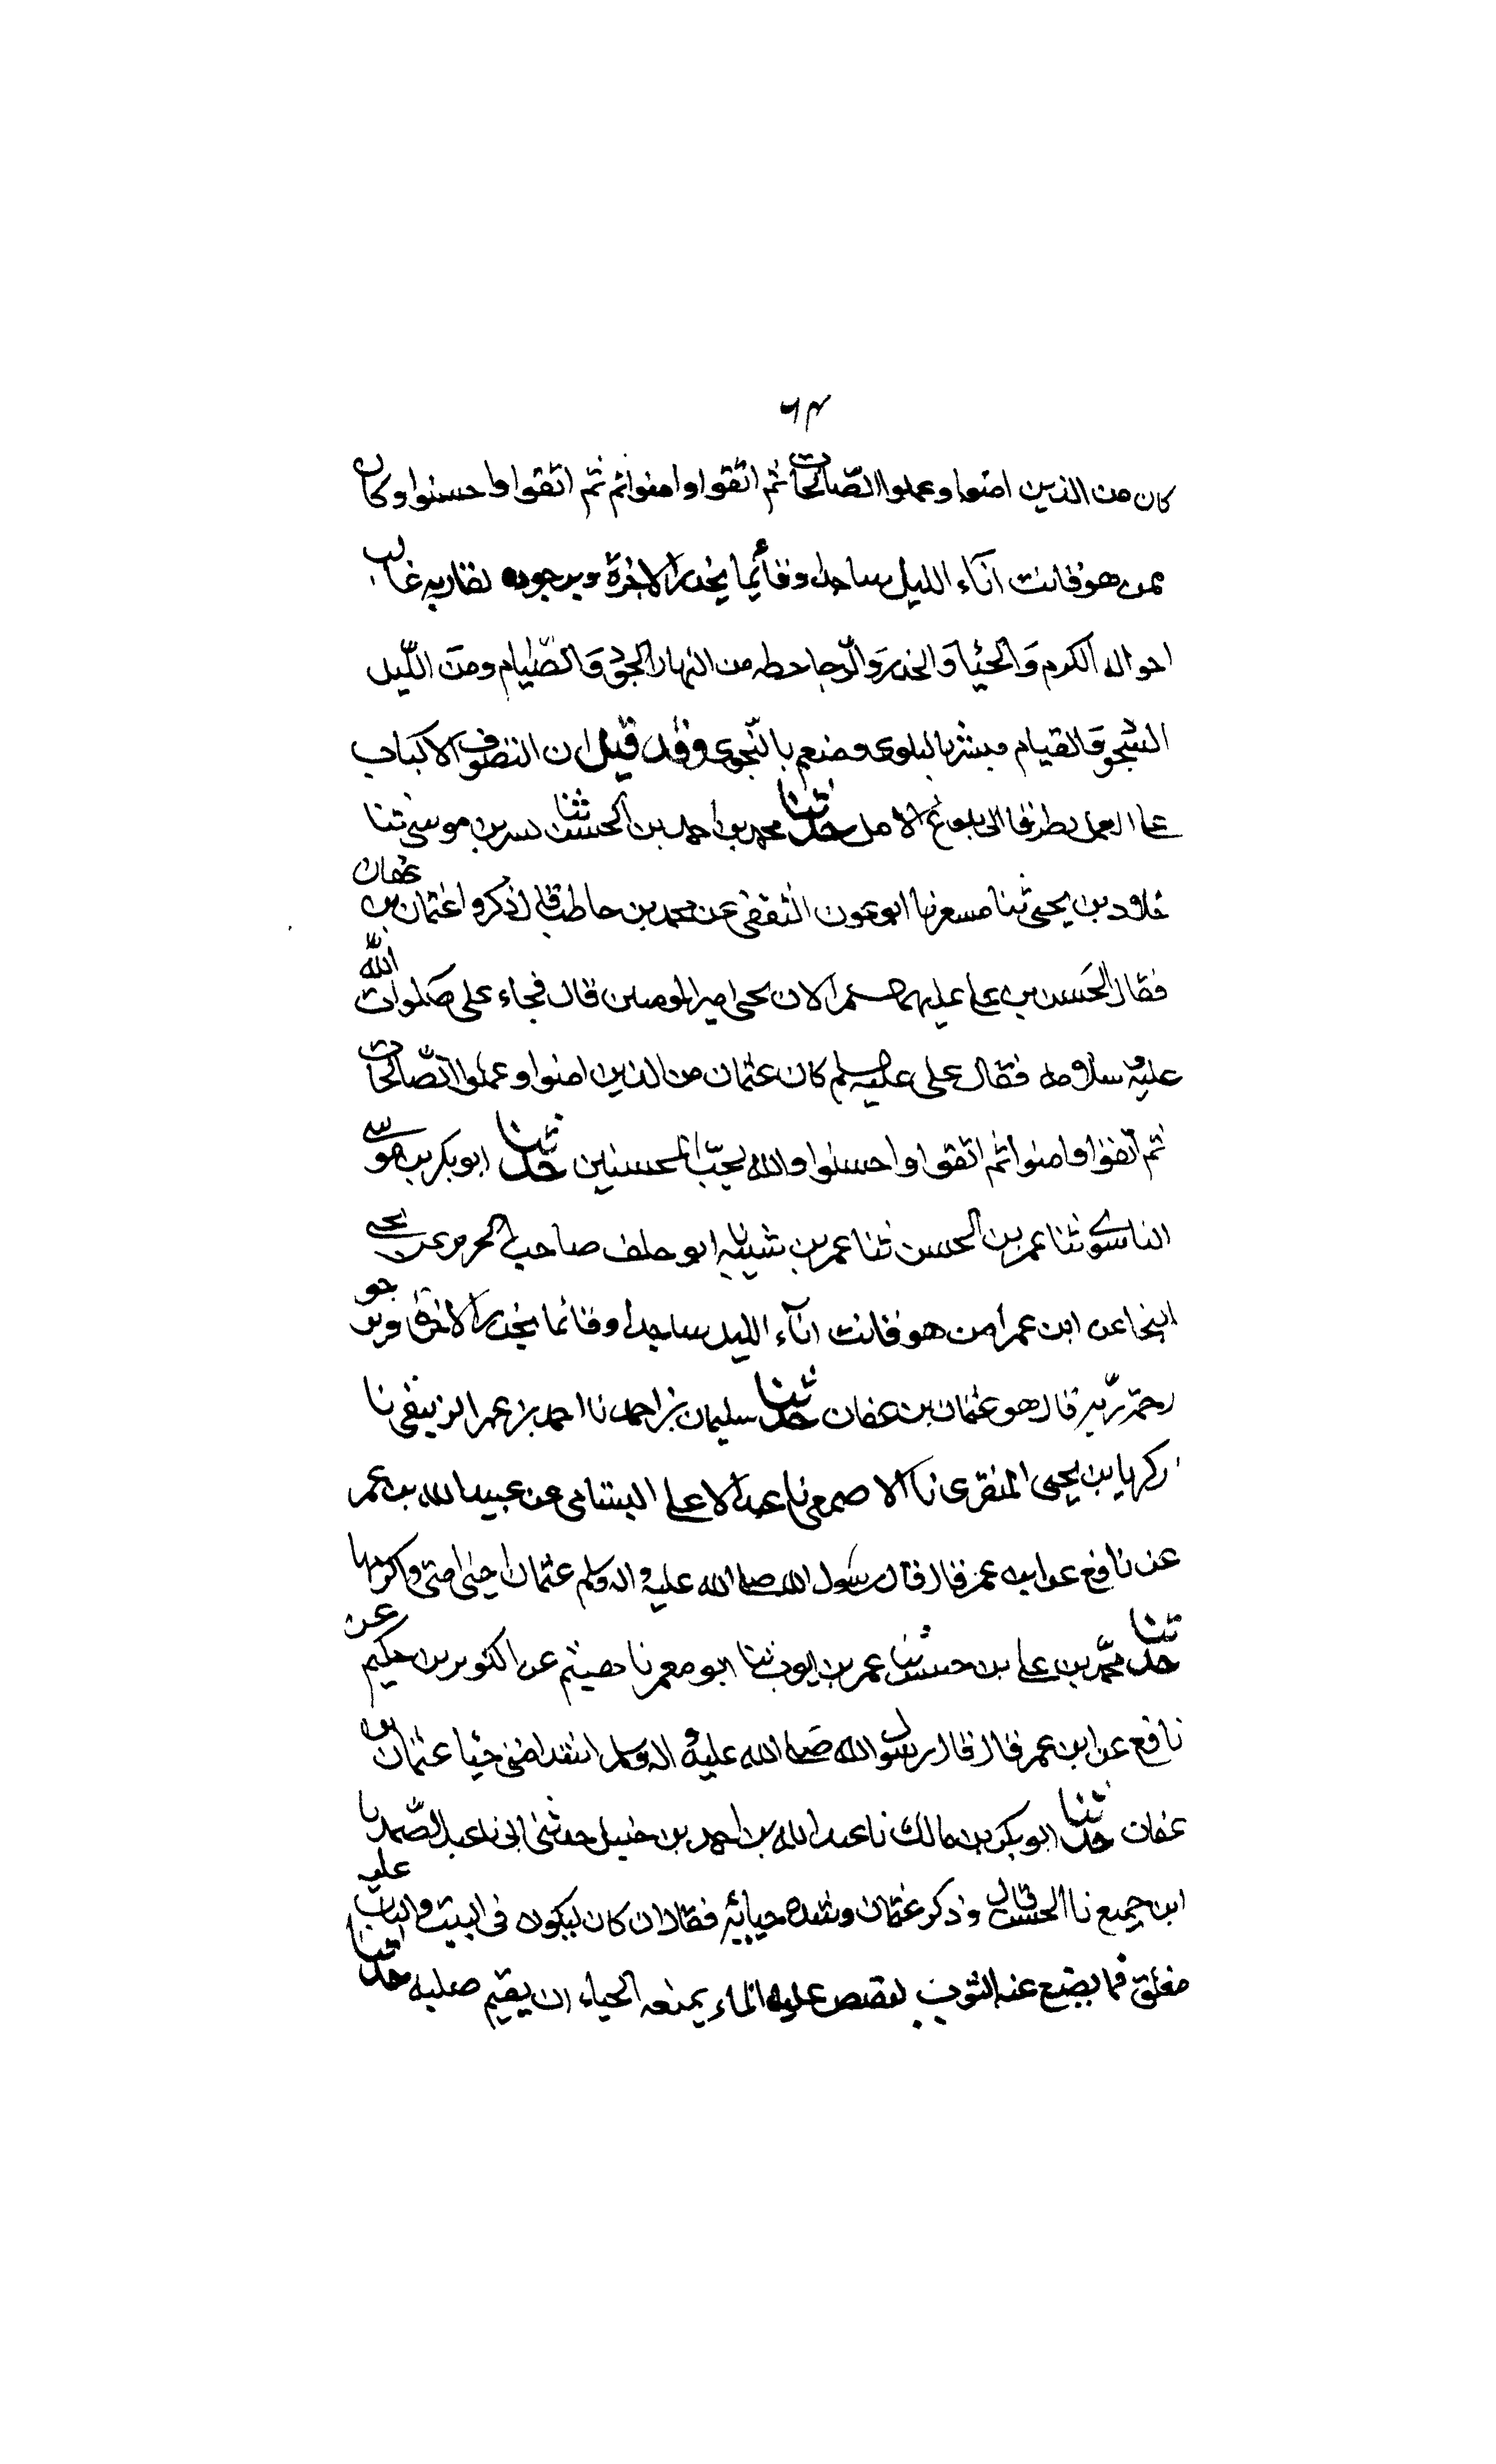 ٦٤
كان من الذين امنوا وعملوا الصّالحات ثم اتقوا وامنوا ثم ثم اتقوا واحسنوا وكان
ممن هو قانت آناء الليل ساجدا وقائما يحذر الاخرة ويرجو لقاربه غالب
احواله الكرم والحيا والحذر والرجا حظه من النهار الجود والصّيام ومن اللّيل
السجو والقيام مبشر بالبلوى ومنعم بالنّجوى وقد قيل ان التصوف الاكباب
على العمل تطرقا الى بلوغ الامل حدثنا محمد بن احمد بن الحسن ثنا بسر بن موسى ثنا
خلاد بن يحيى ثنا مسعر ثنا ابو عون الثقفى عن محمد بن حاطب قال ذكروا عثمان بن عفان
فقال الحسن بن على عليهما الان يجى امير المومنين قال فجاء على صلوات الله
عليه وسلامه فقال على عليه كان عثمان من الذين امنوا وعملوا الصّالحات
ثم اتقوا وامنوا ثم اتقوا واحسنوا والله يحبّ المحسنين حدثنا ابو بكر بن موسى
ثنا عمر بن الحسن ثنا عمر بن شيبه ابو خلف صاحب الحرير عن يحيى
عن ابن عمر امن هو قانت اناء الليل ساجدا وقائما يحذر الاخرة ويرجو
رحمة ربه قال هو عثمان بن عفان حدثنا سليمان بن احمد نا احمد بن عمر نا
زكريا بن يحيى المنقرى نا الاصمعى نا عبد الاعلى عن عبيد الله بن عمر
عن نافع عن ابن عمر قال قال رسول الله صلى الله عليه واله وسلم عثمان احيى امتى واكرمها
حدثنا محمّد بن على بن حبيش ثنا عمر بن ايوب ثنا ابو معمر نا هشيم عن الكوثر بن حكيم عن
نافع عن ابن عمر قال قال رسول الله صلى الله عليه واله وسلم اشد امتى حيا عثمان بن
عفان حدثنا ابو بكر بن مالك نا عبد الله بن احمد بن حنبل حدثنى ابى نا عبد الصّمد نا
ابن جميع نا الحسن قال وذكر عثمان وشدة حيائه فقال ان كان ليكون فى البيت والباب عليه
مغلق فما يضع عنه الثوب ليفيض عليه الماء يمنعه الحياء ان يقيم صلبه حدثنا